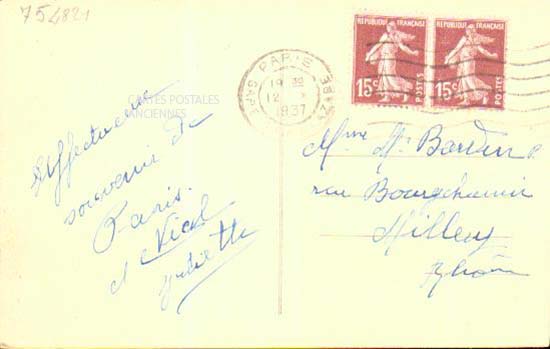 754821
CARTES POSTALES
ANCIENNES
Affectueux
souvenir de
Paris.
Juliette
PARIS
19
12
1937
GARE
REPUBLIQUE FRANÇAISE
15c
POSTES
REPUBLIQUE FRANÇAISE
15c
POSTES
Mme
rue Bourgchanin
Millery
Rhône